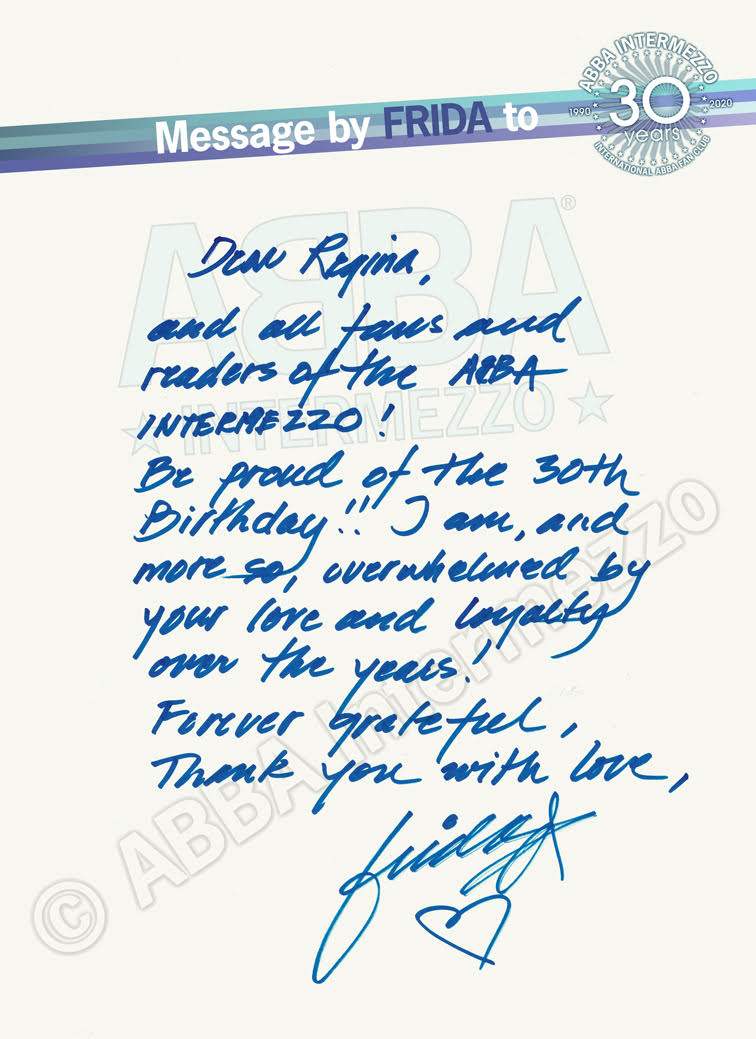 ABBA INTERMEZZO
1990 30 2020
years
INTERNATIONAL ABBA FAN CLUB
Message by FRIDA to
ABBA®
INTERMEZZO
Dear Regina,
and all fans and
readers of the ABBA
INTERMEZZO!
Be proud of the 30th
Birthday!! I am, and
more so, overwhelmed by
your love and loyalty
over the years!
Forever grateful,
Thank you with love,
Frida
© ABBA Intermezzo